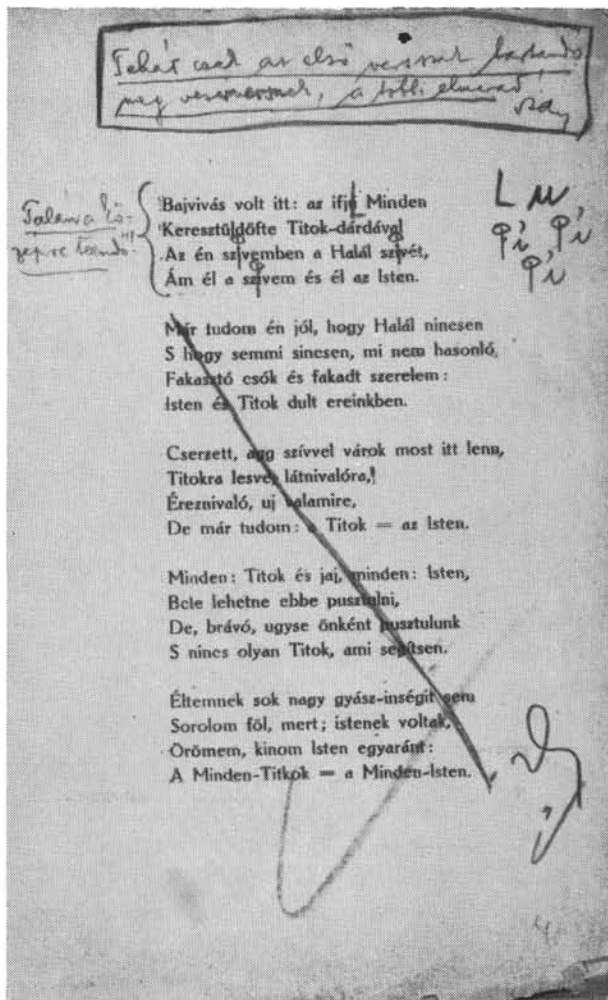 Tehát csak az első versszak tartandó
meg versnek, a többi elmarad!
Talán a kö-
zepre teendő
Bajvivás volt itt: az ifjú Minden
Keresztüldöfte Titok-dárdával
Az én szivemben a Halál szivét,
Ám él a szivem és él az Isten.
Már tudom én jól, hogy Halál nincsen
S hogy semmi sincsen, mi nem hasonló,
Fakasztó csók és fakadt szerelem:
Isten és Titok dult ereinkben.
Cserzett, agg szívvel várok most itt lenn,
Titokra lesve, látnivalóra,!
Éreznivaló, uj valamire,
De már tudom: a Titok = az Isten.
Minden: Titok és jaj, minden: Isten,
Bele lehetne ebbe pusztulni,
De, brávó, ugyse önként pusztulunk
S nincs olyan Titok, ami segítsen.
Éltemnek sok nagy gyász-inségit sem
Sorolom föl, mert; istenek voltak,
Örömem, kinom Isten egyaránt:
A Minden-Titkok = a Minden-Isten.